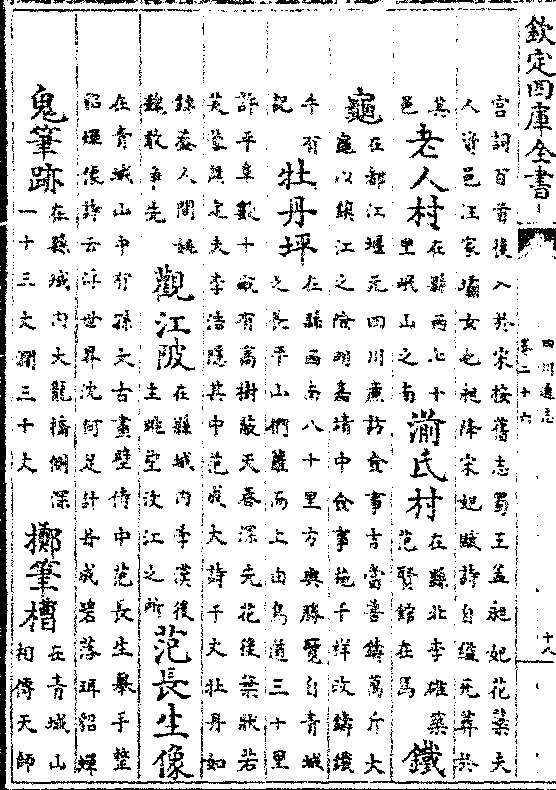 欽定四庫全書
四川通志
卷二十六
十八
宫詞百首後入於宋按舊志蜀王孟昶妃花蕋夫
人許邑汪家壩女也昶降宋妃賦詩自縊死葬於
其
邑
老人村
在縣西七十
里岷山之南
湔氏村
在縣北李雄築
范賢館在焉
鐵
龜
在都江堰元四川亷訪僉事吉當普鑄萬斤大
龜以鎮江之險明嘉靖中僉事施千祥改鑄鐵
牛有
記
牡丹坪
在縣西南八十里方輿勝覽自青城
之長平山捫蘿而上由鳥道三十里
許平阜數十畝有高樹蔽天春深先花後葉狀若
芙蓉定夫李浩隱其中范成大詩千丈牡丹如
錦蓋人間姚
魏敢爭先
觀江陂
在縣城内季漢後
主眺望汶江之所
范長生像
在青城山中有孫太古畫壁侍中范長生舉手整
貂蟬詩云浮世界沈何足計丹成碧落珥貂蟬
鬼筆跡
在縣城内大龍橋側深
一十三丈濶三十丈
擲筆槽
在青城山
相傳天師